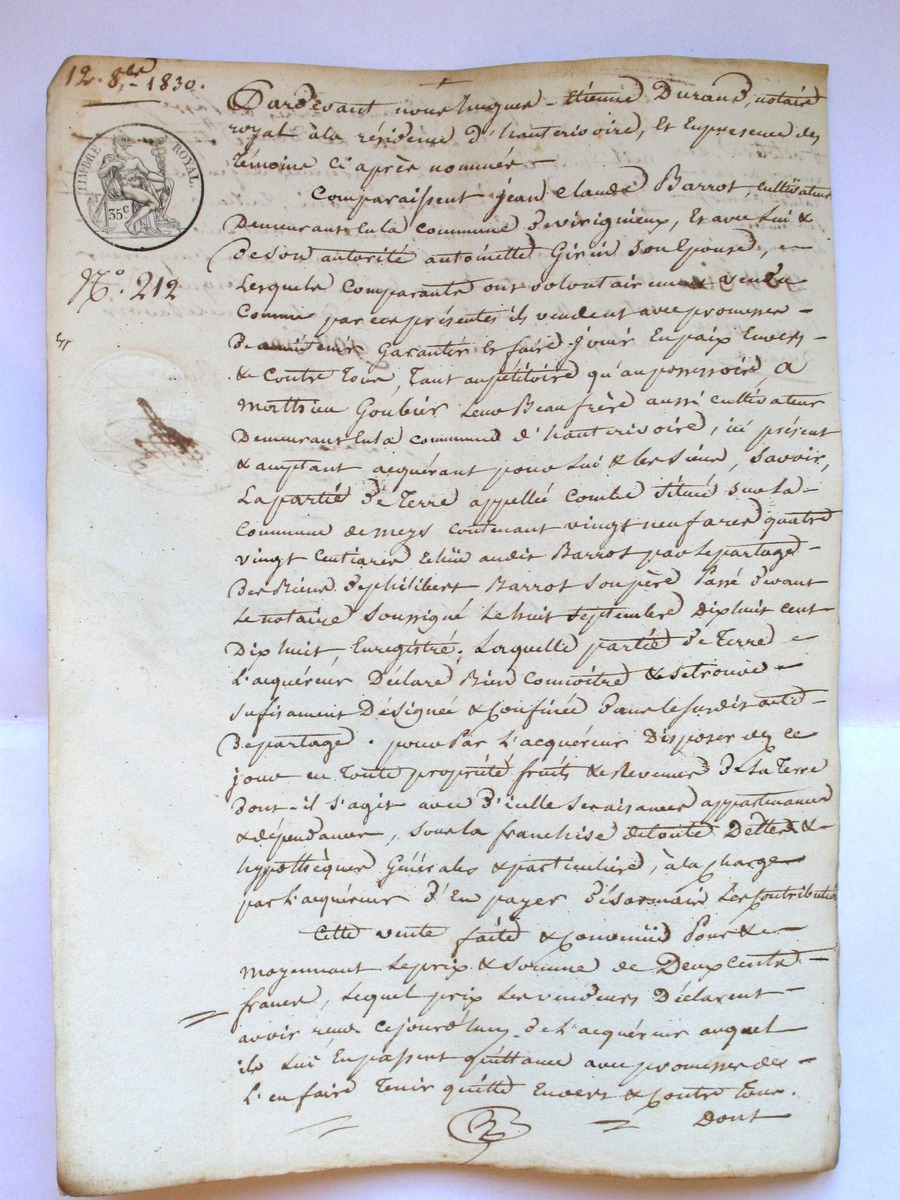 12. 8bre 1830.
TIMBRE ROYAL.
35c
No. 212
Pardevant nous hugues-Etienne Durand, notaire
royal à la résidence d'hauterivoire, Et En presence des
témoins ci après nommés
Comparaissent jean Claude Barrot, cultivateur
Demeurant En la commune de virigneux, Et avec Lui &
De son autorité antoinette Girin son Epouse,
Lesquels Comparants ont volontairement vendu
Comme par ces présentes ils vendent avec promesse
De maintenir Garantir & faire jouir En paix Envers
& Contre Tous, Tant au pétitoire qu'au possessoire, a
Matthieu Goubier Leur Beaufrère aussi Cultivateur
Demeurant En la commune d'hauterivoire, ici présent
& acceptant acquérant pour Lui & les Siens, Savoir,
La partie De Terre appellée Combe Située Sur La
Commune de meys Contenant vingt neuf ares quatre
vingt Centiares Echue audit Barrot par Le partage
Des Biens De philibert Barrot Son père Passé Devant
Le notaire Soussigné Le huit Septembre Dix huit cent
Dix huit, Enregistré; Laquelle partie De Terre
L'acquéreur Déclare Bien Connoitre & Se trouve
Sufisament Désignée & Confinée Dans le Susdit acte
De partage. pour Par L'acquéreur Disposer dez ce
jour en Toute propriété fruits & Revenus De La Terre
Dont-il S'agit avec D'icelle Ses aisances appartenances
& dépendances, Sous La franchise de toute Dettes &
hypothèques Générales & particulière, à la Charge
par L'acquéreur D'En payer Désormais Les Contributions
Cette vente faite & Convenüe Pour &
Moyennant Le prix & Somme de Deux Cents
francs, Lequel prix Les vendeurs Déclarent
avoir reçu Cejourd'huy De L'acquéreur auquel
ils Lui En passent Quittance avec promesse de
L'en faire Tenir quitte Envers & Contre Tous.
Dont